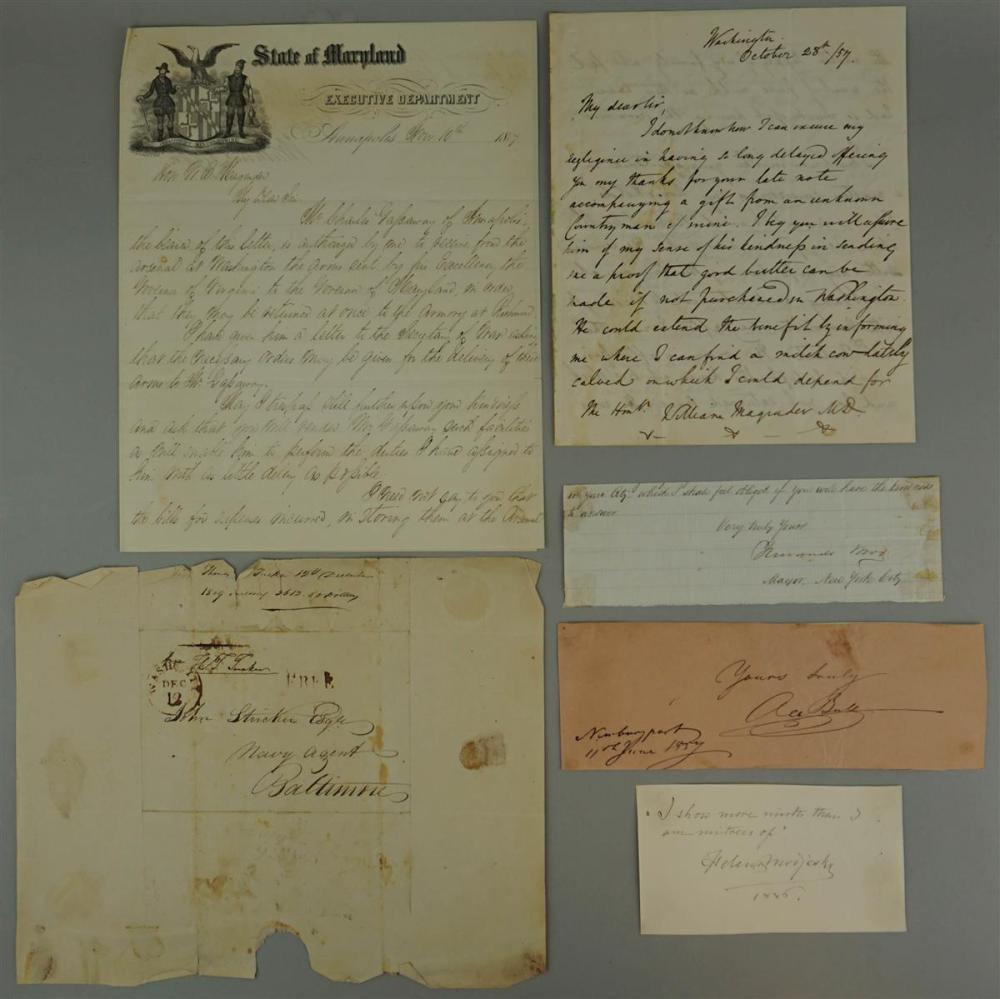 State of Maryland
EXECUTIVE DEPARTMENT
Annapolis Nov 10th 1857
My Dear Sir
Mr Charles Gassaway of Annapolis
the bearer of this letter, is authorized by me to receive from the
Arsenal at Washington the Arms sent by his Excellency the
Governor of Virginia to the Governor of Maryland, in order
that they may be returned at once to the Armory at Richmond.
I have given him a letter to the Secretary of War asking
that the necessary orders may be given for the delivery of these
Arms to Mr Gassaway.
May I trespass still further upon your kindness
and ask that you will render Mr Gassaway such facilities
as will enable him to perform the duties I have assigned to
him with as little delay as possible.
I need not say to you that
the bills for expenses incurred, in storing them at the Arsenal
Washington
October 28th /57.
My dear Sir,
I do not know how I can excuse my
negligence in having so long delayed offering
you my thanks for your late note
accompanying a gift from an unknown
Countryman of mine. I beg you will assure
him of my sense of his kindness in sending
me a proof that good butter can be
made if not purchased in Washington
He could extend the benefit by informing
me where I can find a milch cow lately
calved on which I could depend for
The Honble. William Magruder MD
in your City which I shall feel obliged if you will have the kindness
to answer
Very truly Yours
Fernando Wood
Mayor, New York City
Thomas Tucker 12th December
1809 3612.60 Dollars
Th T Tucker
WASHn CITY
DEC
12
FREE
John Stricker Esqr
Navy Agent
Baltimore
Yours truly
Ole Bull
Newburyport
11th June 1857
"I show more mirth than I
am mistress of"
Helena Modjeska
1886.